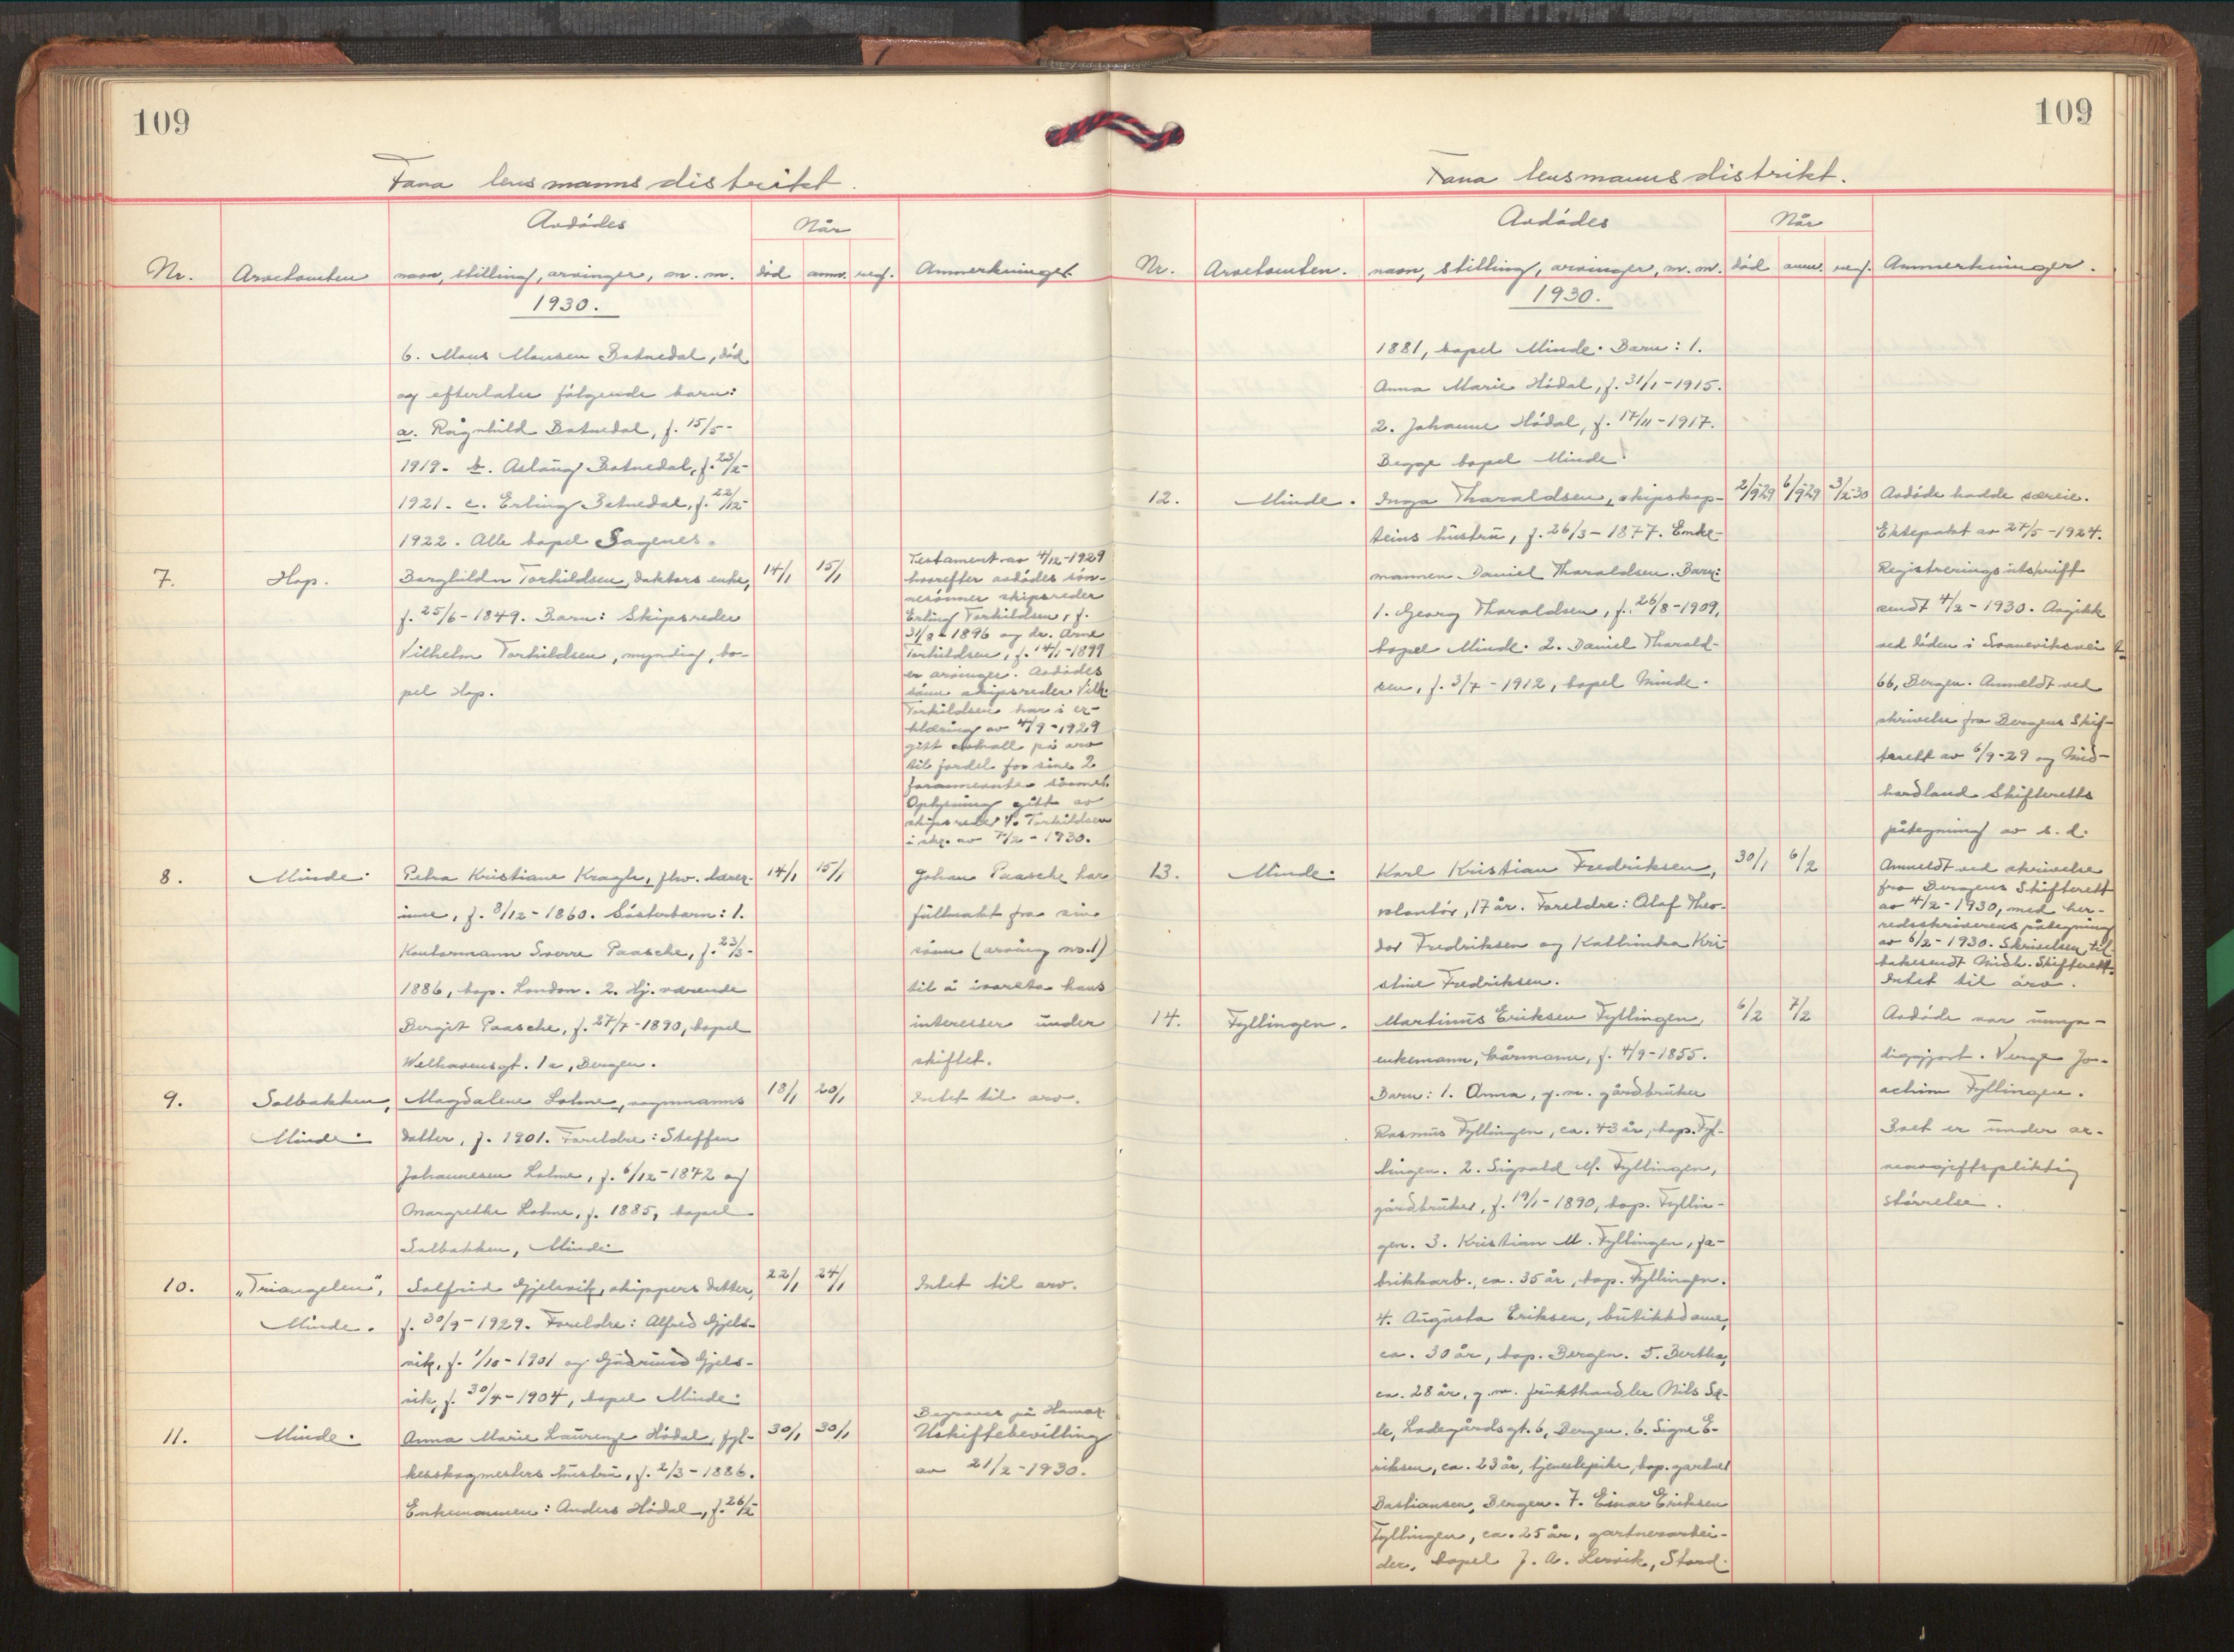 109
Fana lensmannsdistrikt.
Avdødes
Når
Nr. Arvetomten navn, stilling, arvinger, m. m. død anm. reg. Anmerkninger
1930.
6. Mons Monsen Botnedal, død
og efterlater følgende barn:
a. Ragnhild Botnedal, f. 15/5-
1919. b. Aslaug Botnedal, f. 23/2-
1921. c. Erling Botnedal, f. 22/12-
1922. Alle bopel Sagenes.
7. Hop. Borghild Torkildsen, doktors enke, 14/1 15/1
f. 25/6-1849. Barn: Skipsreder
Vilhelm Torkildsen, myndig, bo-
pel Hop.
Testament av 4/12-1929
hvorefter avdødes søn-
nesønner skipsreder
Erling Torkildsen, f.
31/8-1896 og dr. Arne
Torkildsen, f. 14/1-1899
er arvinger. Avdødes
sønn skipsreder Vilh.
Torkildsen har i er-
klæring av 4/9-1929
gitt avkall på arv
til fordel for sine 2
forannevnte sønner.
Oplysning gitt av
skipsreder V. Torkildsen
i skr. av 7/2-1930.
8. Minde. Petra Kristiane Kragh, fhv. lærer- 14/1 15/1
inne, f. 8/12-1860. Søsterbarn: 1.
Kontormann Sverre Paasche, f. 23/3-
1886, bop. London. 2. Hj. værende
Bergit Paasche, f. 27/7-1890, bopel
Welhavensgt. 1a, Bergen.
Johan Paasche har
fullmakt fra sin
sønn (arving no. 1)
til å ivareta hans
interesser under
skiftet.
9. Solbakken, Magdalene Lohne, vognmanns 18/1 20/1 Intet til arv.
Minde. datter, f. 1901. Foreldre: Steffen
Johannesen Lohne, f. 6/12-1872 og
Margrethe Lohne, f. 1885, bopel
Solbakken, Minde.
10. "Triangelen", Solfrid Gjelsvik, skippers datter, 22/1 24/1 Intet til arv.
Minde. f. 30/9-1929. Foreldre: Alfred Gjels-
vik, f. 1/10-1901 og Gudrund Gjels-
vik, f. 30/4-1904, bopel Minde.
Begraves på Hamar.
11. Minde. Anna Marie Laurenze Hødal, fyl- 30/1 30/1 Uskiftebevilling
kesskogmesters hustru, f. 2/3-1886. av 21/2-1930.
Enkemannen: Anders Hødal, f. 26/2
109
Fana lensmannsdistrikt.
Avdødes
Når
Nr. Arvetomten. navn, stilling, arvinger, m. m. død anm. reg. Anmerkninger.
1930.
1881, bopel Minde. Barn: 1.
Anna Marie Hødal, f. 31/1-1915.
2. Johanne Hødal, f. 17/11-1917.
Begge bopel Minde.
12. Minde. Inga Tharaldsen, skipskap- 2/9-29 6/9-29 3/2-30 Avdøde hadde særeie.
teins hustru, f. 26/3-1877. Enke- Ektepakt av 27/5-1924.
mannen Daniel Tharaldsen. Barn: Registreringsutskrift
1. Georg Tharaldsen, f. 26/8-1909, sendt 4/2-1930. Avgikk
bopel Minde. 2. Daniel Tharald- ved døden i Svaneviksvei
sen, f. 3/7-1912, bopel Minde. 66, Bergen. Anmeldt ved
skrivelse fra Bergens Skif-
terett av 6/9-29 og Mid-
hordland Skifteretts
påtegning av s. d.
13. Minde. Karl Kristian Fredriksen, 30/1 6/2
volontør, 17 år. Foreldre: Olaf Theo-
dor Fredriksen og Kathinka Kri-
stine Fredriksen.
Anmeldt ved skrivelse
fra Bergens Skifterett
av 4/2-1930, med her-
redsskriverens påtegning
av 6/2-1930. Skrivelsen til-
bakesendt Midh. Skifterett.
Intet til arv.
14. Fyllingen. Martinus Eriksen Fyllingen, 6/2 7/2 Avdøde var umyn-
enkemann, kårmann, f. 4/9-1855. diggjort. Verge Jo-
Barn: 1. Anna, g. m. gårdbruker achim Fyllingen.
Rasmus Fyllingen, ca. 43 år, bop. Fyl- Boet er under ar-
lingen. 2. Sigvald M. Fyllingen, veavgiftspliktig
gårdbruker, f. 19/1-1890, bop. Fyllin- størrelse.
gen. 3. Kristian M. Fyllingen, fa-
brikkarb., ca. 35 år, bop. Fyllingen.
4. Augusta Eriksen, butikkdame,
ca. 30 år, bop. Bergen. 5. Bertha,
ca. 28 år, g. m. frukthandler Nils Sæ-
le, Ladegårdsgt. 6, Bergen. 6. Signe E-
riksen, ca. 23 år, tjenestepike, bop. gartner
Bastiansen, Bergen. 7. Einar Eriksen
Fyllingen, ca. 25 år, gartnerarbei-
der, bopel J. A. Lervik, Stord.